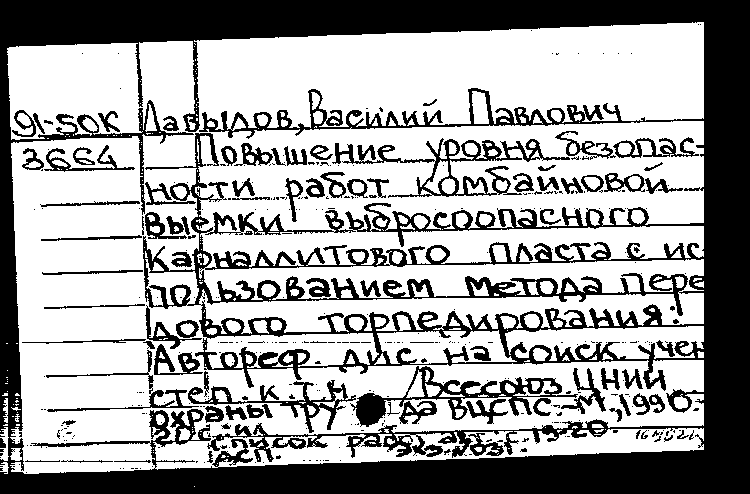 91-50К Давыдов, Василий Павлович.
3664 Повышение уровня безопас-
ности работ комбайновой
выемки выбросоопасного
карналлитового пласта с ис
пользованием метода пере
дового торпедирования:
Автореф. дис. на соиск. учен
степ. к.т.н. /Всесоюз. ЦНИИ
охраны тру да ВЦСПС.-М., 1990.-
20с. ил
Список работ авт. с. 19-20.